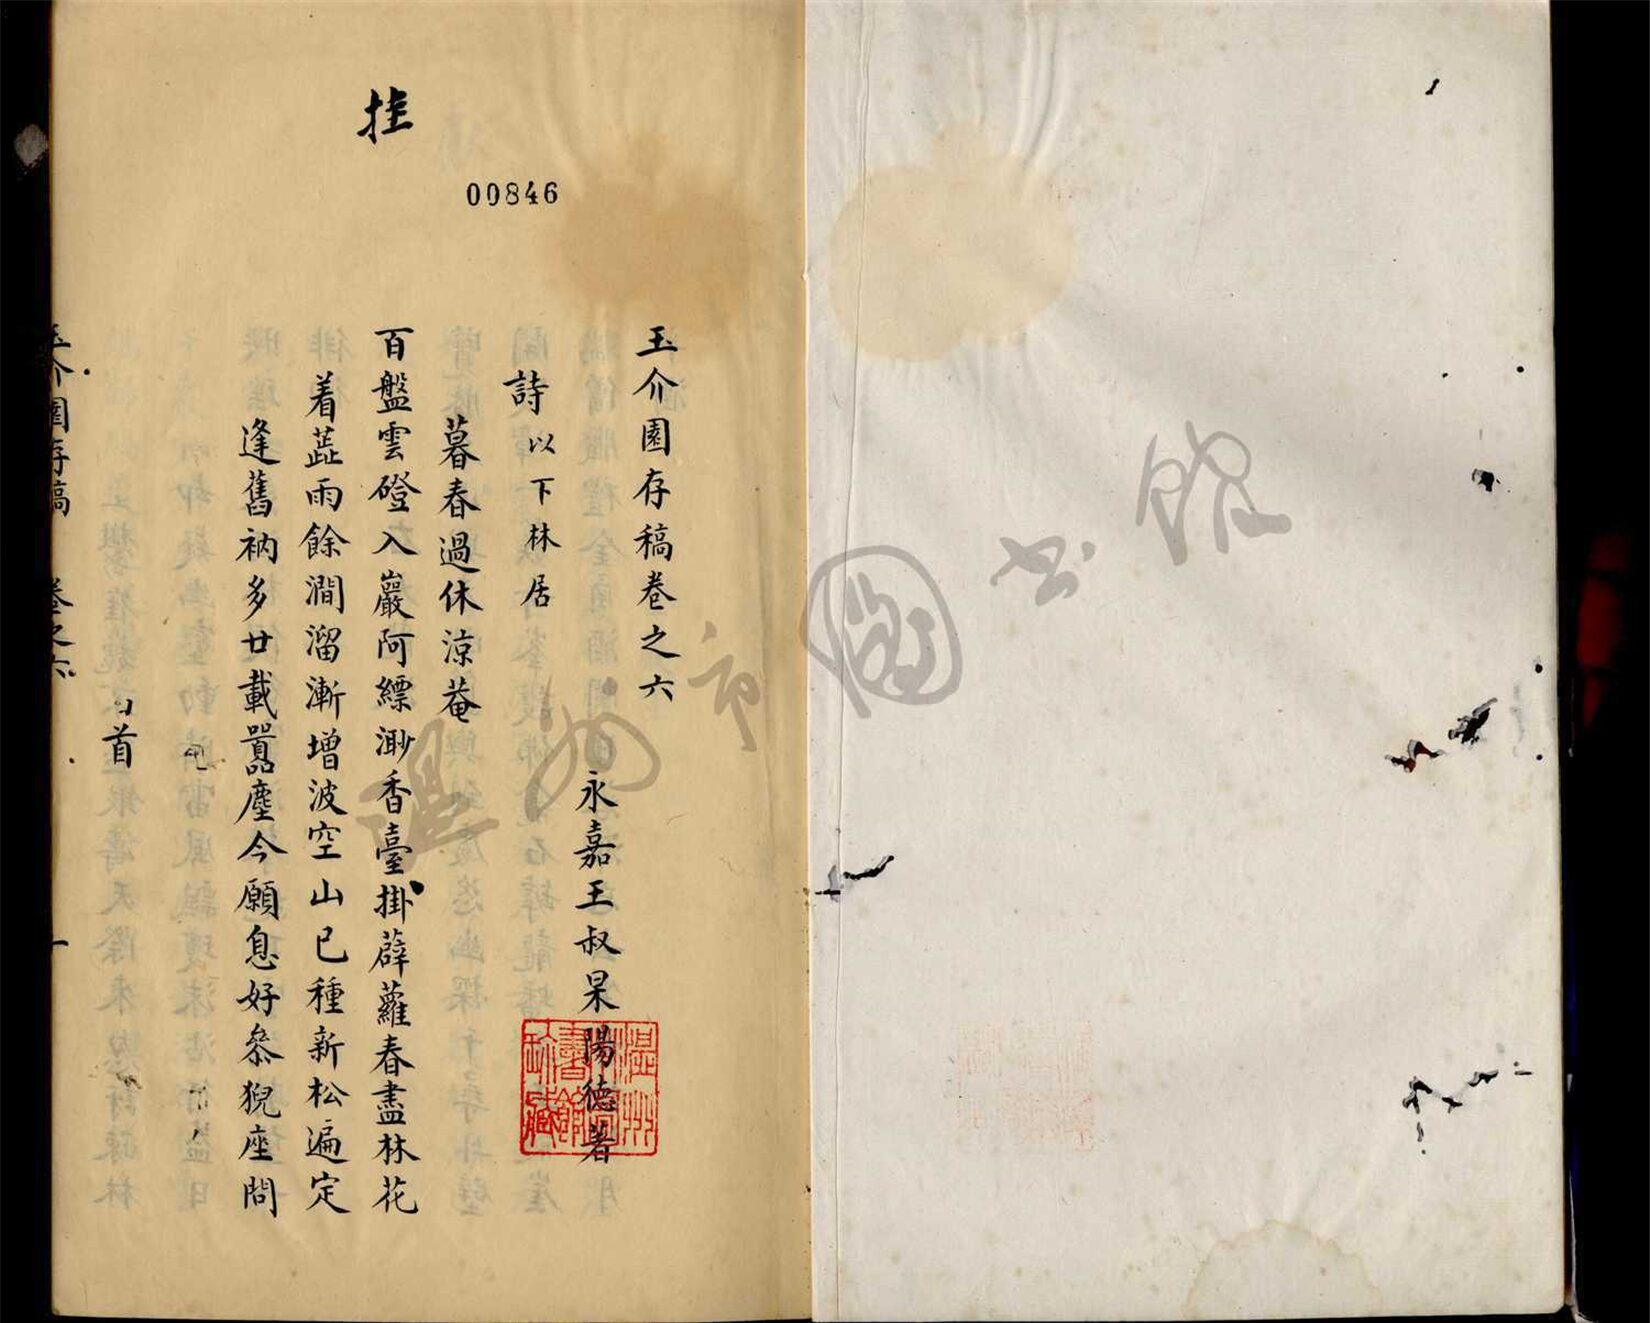 玉介園存稿卷之六
永嘉王叔杲陽德著
詩以下林居
暮春過休涼菴
百盤雲磴入巖阿縹渺香臺掛薜蘿春盡林花
着蕋雨餘澗溜漸增波空山已種新松遍定
逢舊衲多廿載囂塵今願息好叅猊座問
首
玉介園存稿 卷之六 一
挂
00846
溫州市圖書館
溫州圖書館珍藏